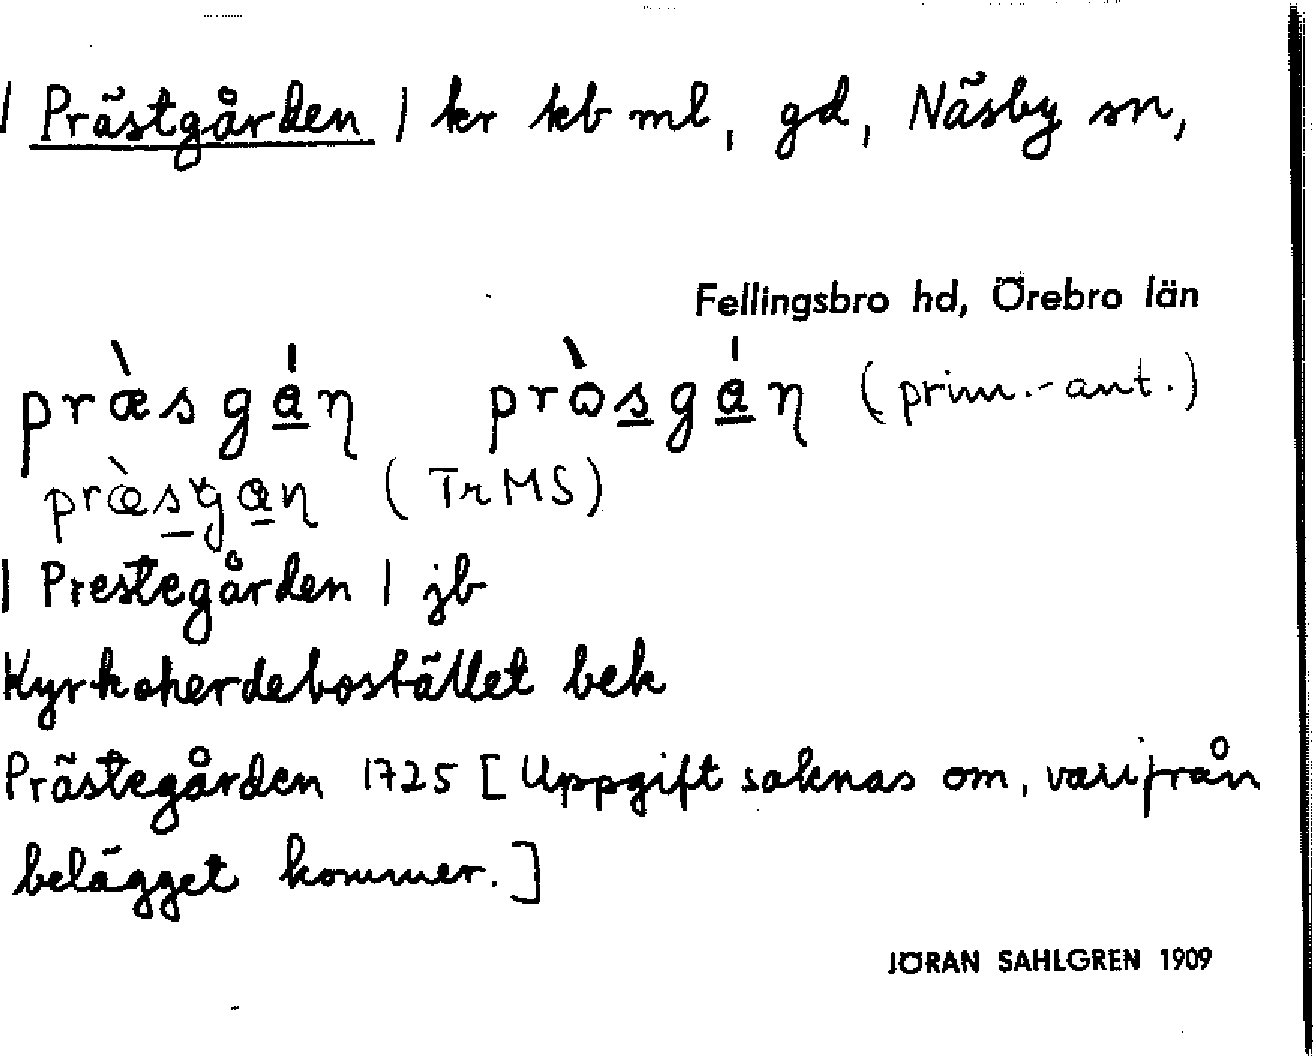 | Prästgården | kr kb ml, gd, Näsby sn,
Fellingsbro hd, Örebro län
præ̀sgá̱n pròs̱gá̱n (prim.-ant.)
præ̀s̱ga̱n (TrMS)
| Prestegården | jb
Kyrkoherdebostället bek
Prästegården 1725 [Uppgift saknas om, varifrån
belägget kommer.]
JÖRAN SAHLGREN 1909